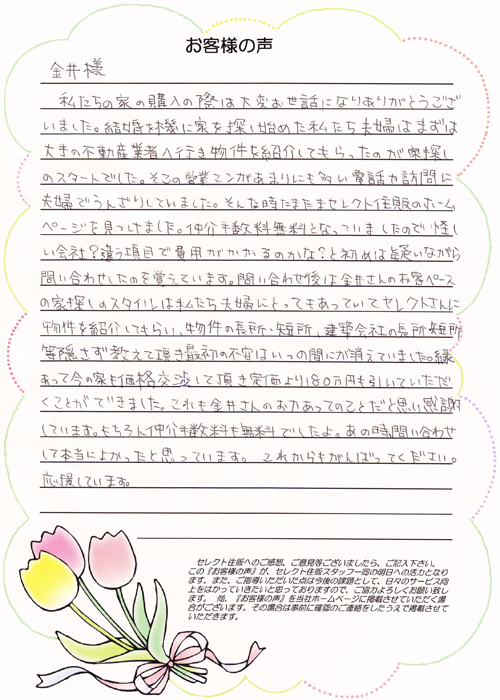 お客様の声
金井様
私たちの家の購入の際は大変お世話になりありがとうござ
いました。結婚を機に家を探し始めた私たち夫婦はまずは
大きの不動産業者へ行き物件を紹介してもらったのが家探し
のスタートでした。そこの営業マンがあまりにも多い電話や訪問に
夫婦でうんざりしていました。そんな時たまたまセレクト住販のホーム
ページを見つけました。仲介手数料無料となっていましたので怪し
い会社?違う項目で費用がかかるのかな?と初めは疑いながら
問い合わせしたのを覚えています。問い合わせ後は金井さんのお客ペース
の家探しのスタイルは私たち夫婦にとってもあっていてセレクトさんに
物件を紹介してもらい、物件の長所・短所、建築会社の長所・短所
等隠さず教えて頂き最初の不安はいつの間にか消えていました。縁
あって今の家も価格交渉して頂き定価より180万円も引いていただ
くことができました。これも金井さんのお力あってのことだと思い感謝
しています。もちろん仲介手数料も無料でしたよ。あの時問い合わせ
して本当によかったと思っています。 これからもがんばってください。
応援しています。
セレクト住販へのご感想、ご意見等ございましたら、ご記入下さい。
この『お客様の声』が、セレクト住販スタッフ一同の明日への活力となり
ます。また、ご指導いただいた点は今後の課題として、日々のサービス向
上をはかっていきたいと思っておりますので、ご協力よろしくお願い致し
ます。 尚、『お客様の声』を当社ホームページに掲載させていただく場
合がございます。その場合は事前に確認のご連絡をしたうえで掲載させて
いただきます。